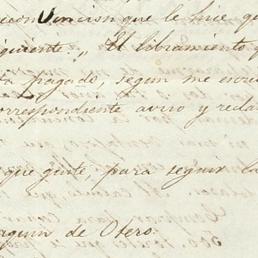 convencion que le hice q
quiente „ El libramiento q
pagado, segun me
correspondiente aviso y recla
que guste, para seguir la
quin de Otero